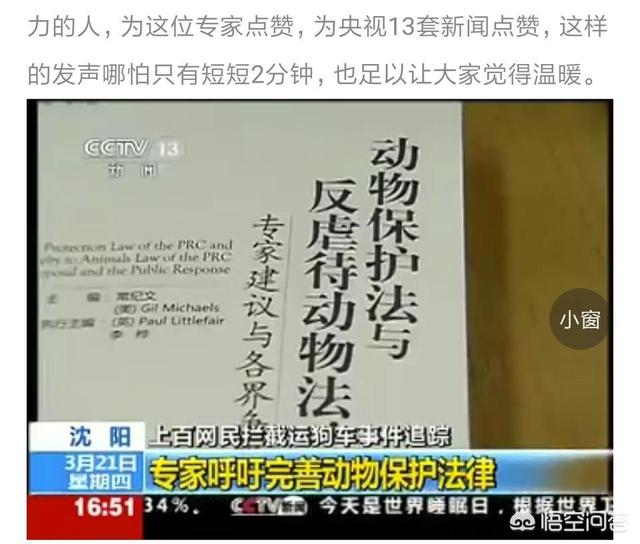 力的人，为这位专家点赞，为央视13套新闻点赞，这样
的发声哪怕只有短短2分钟，也足以让大家觉得温暖。
CCTV 13
新闻
动物保护法与
反虐待动物法
专家建议与各界
Protection Law of the PRC and
to Animals Law of the PRC
posal and the Public Response
主 编：常纪文
(美) Gil Michaels
执行主编：(英) Paul Littlefair
李 桦
小窗
沈阳
上百网民拦截运狗车事件追踪
3月21日
星期四
专家呼吁完善动物保护法律
16:51
34%。 CCTV新闻 今天是世界睡眠日，根据世界卫
悟空问答